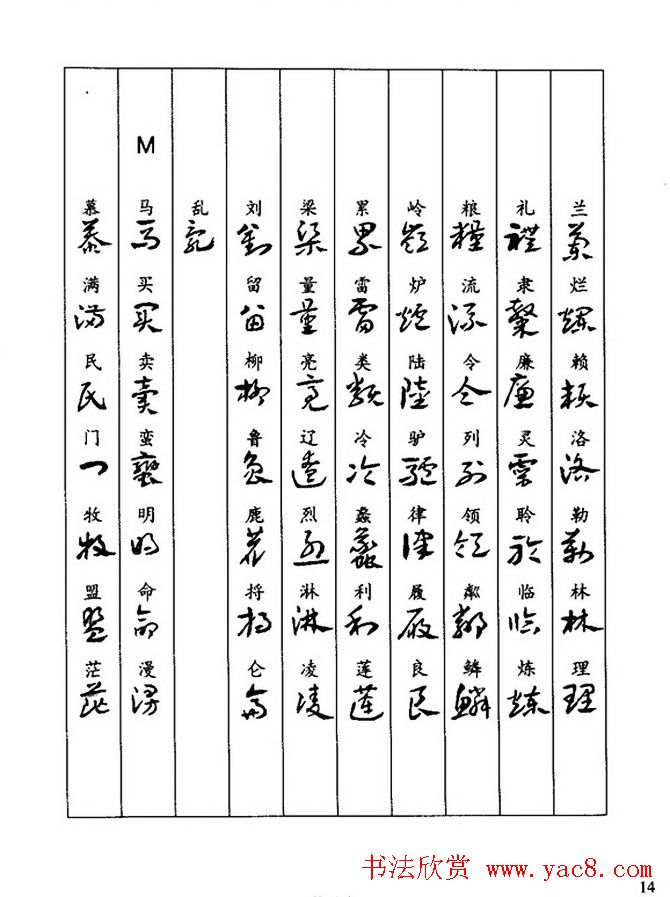 兰 烂 赖 洛 勒 林 理
礼 隶 廉 灵 聆 临 炼
粮 流 令 列 领 鳞
岭 炉 陆 驴 律 履 良
累 雷 类 冷 蠡 利 莲
梁 量 亮 辽 烈 淋 凌
刘 留 柳 鲁 鹿 将 仑
乱
M
马 买 卖 蛮 明 命 漫
慕 满 民 门 牧 盟 茫
书法欣赏 www.yac8.com
14